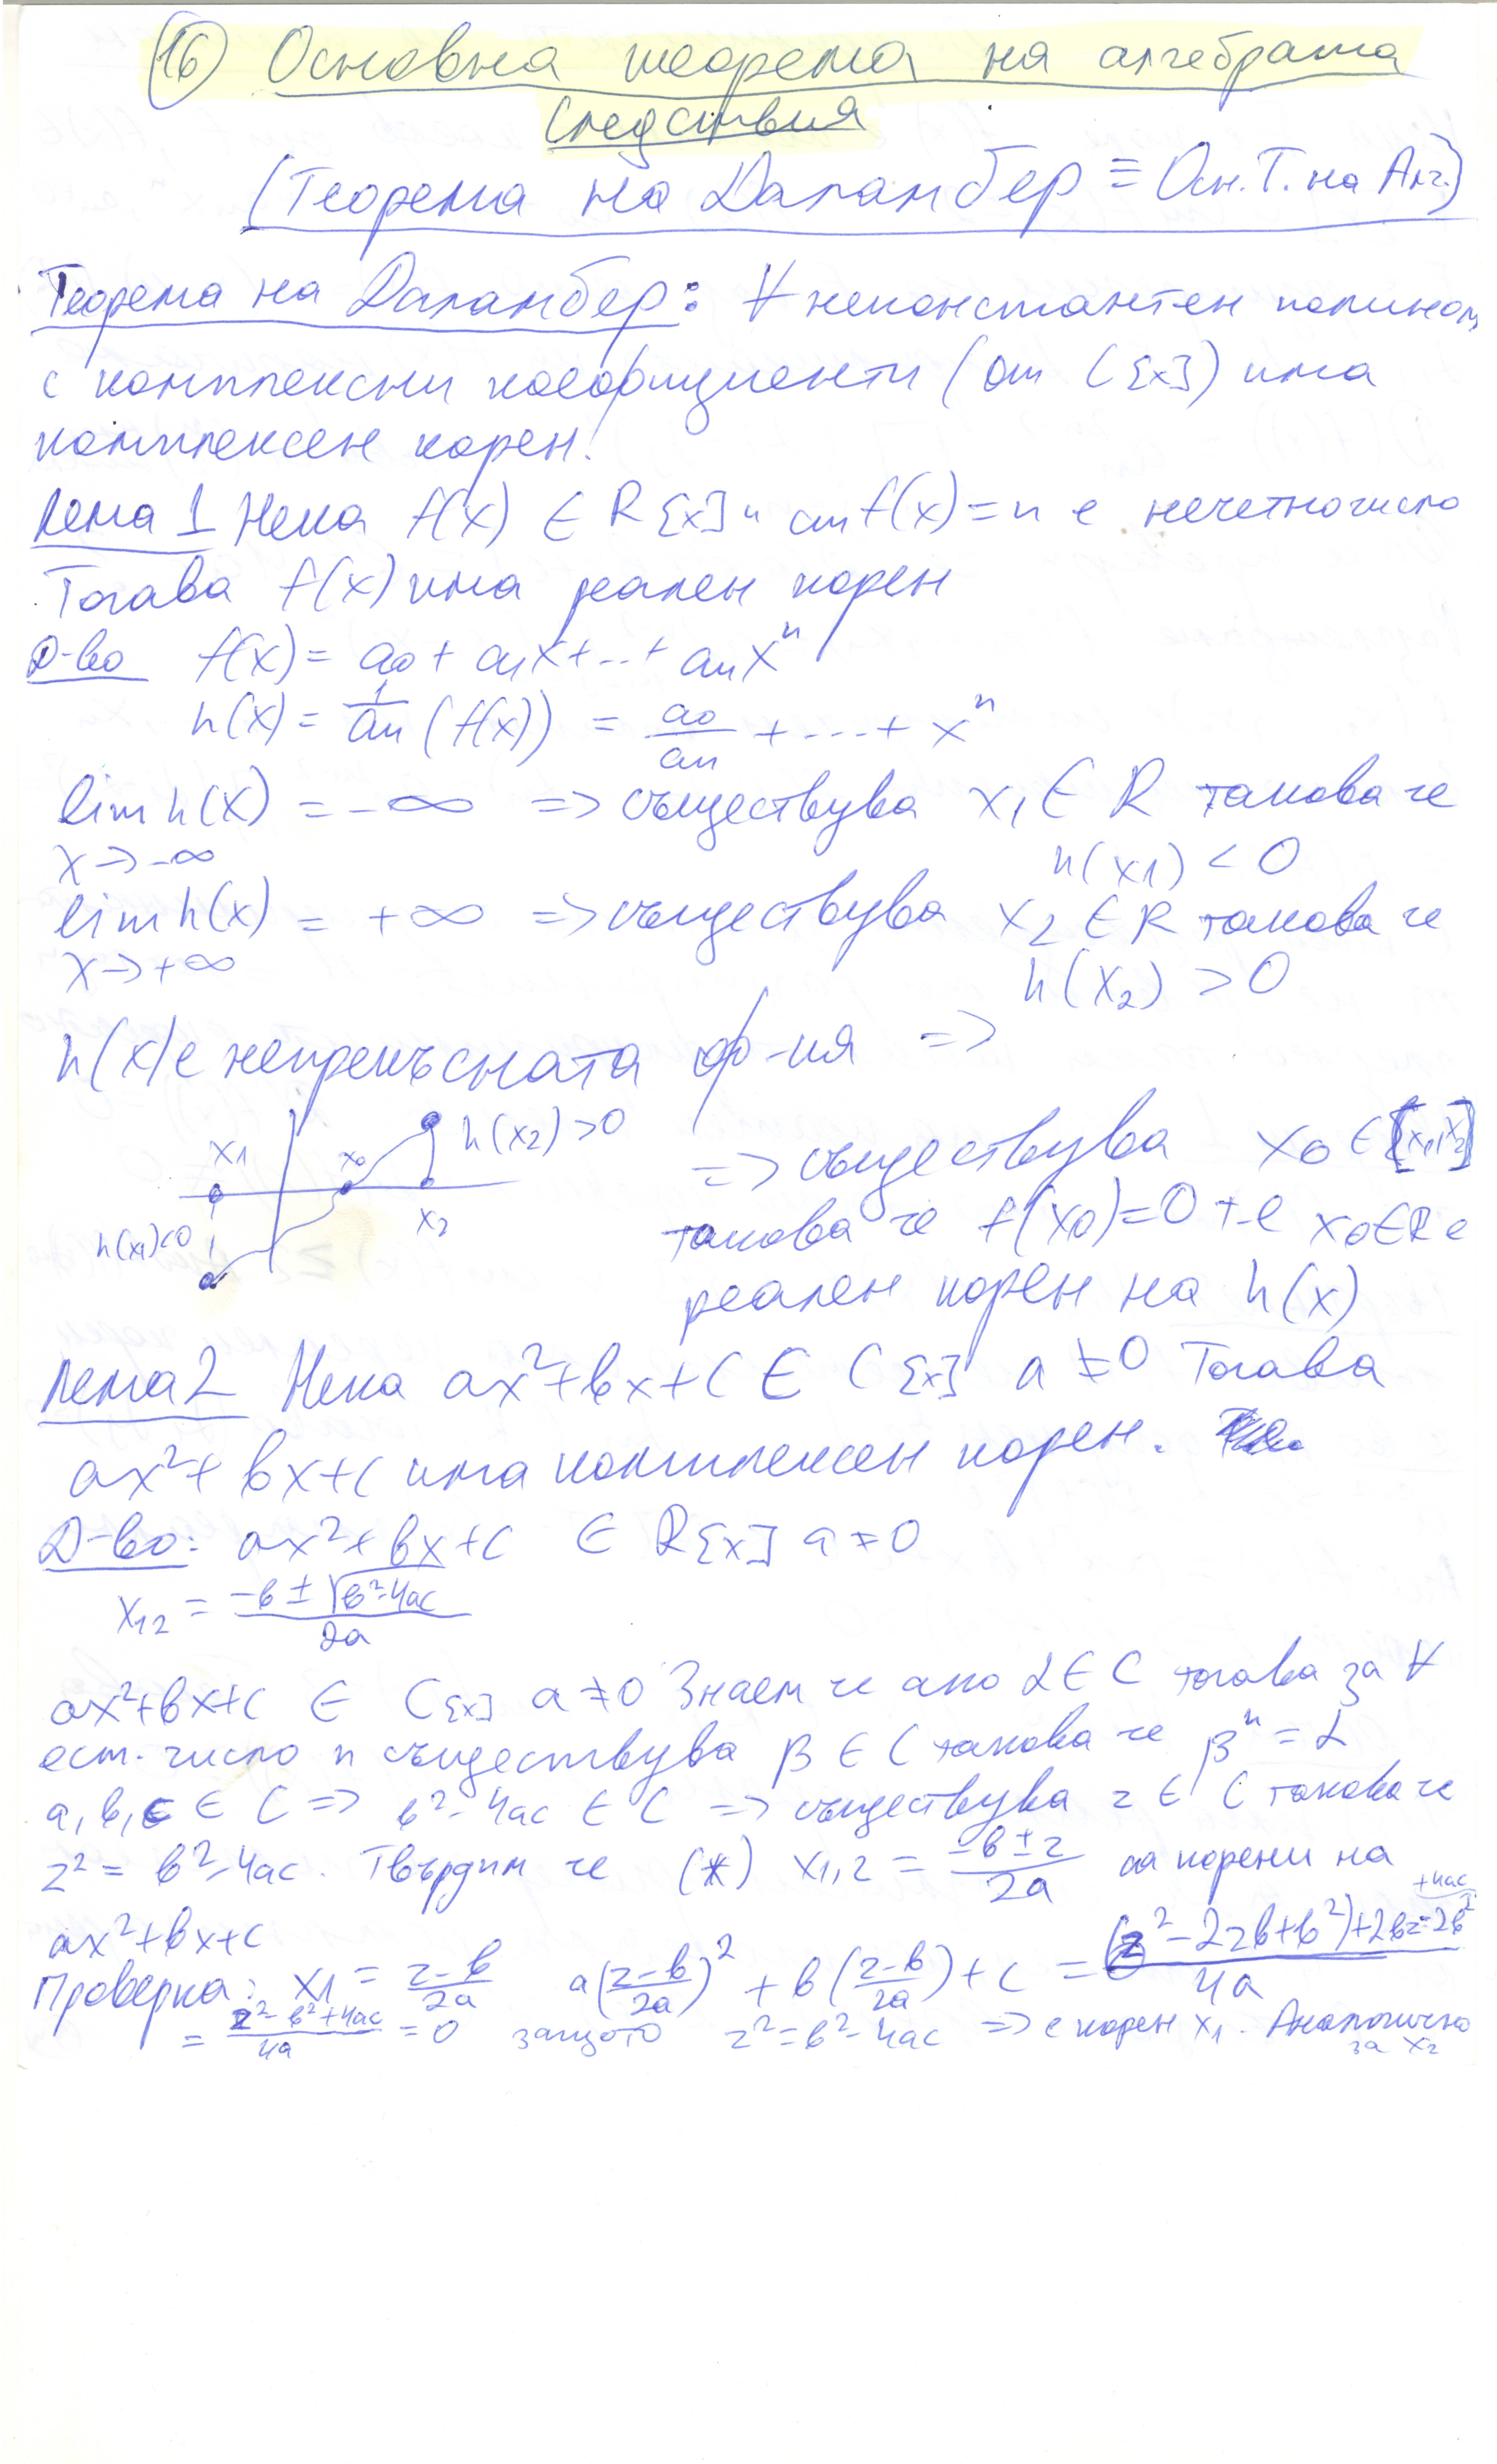 16 Основна теорема на алгебрата
Следствия
(Теорема на Даламбер ≡ Осн. Т. на Алг.)
Теорема на Даламбер: ∀ неконстантен полином
с комплексни коефициенти (от C[x]) има
комплексен корен!
Лема 1 Нека f(x) ∈ R[x] и ст f(x) = n е нечетно число
Тогава f(x) има реален корен
Д-во f(x) = a0 + a1x + ... + anx^n
h(x) = 1/an (f(x)) = a0/an + ... + x^n
lim h(x) = -∞ => съществува x1 ∈ R такова че
x→-∞ h(x1) < 0
lim h(x) = +∞ => съществува x2 ∈ R такова че
x→+∞ h(x2) > 0
h(x) е непрекъсната ф-ия =>
x1 x0 h(x2) > 0
x2
h(x1)<0
=> съществува x0 ∈ [x1,x2]
такова че f(x0) = 0 т.е x0 ∈ R е
реален корен на h(x)
Лема 2 Нека ax²+bx+c ∈ C[x] a ≠ 0 Тогава
ax²+bx+c има комплексен корен.
Д-во: ax²+bx+c ∈ R[x] a ≠ 0
x12 = (-b ± √(b²-4ac))/2a
ax²+bx+c ∈ C[x] a ≠ 0 Знаем че ако α ∈ C тогава за ∀
ест. число n съществува β ∈ C такова че β^n = α
a, b, c ∈ C => b²-4ac ∈ C => съществува z ∈ C такова че
z² = b²-4ac. Твърдим че (*) x1,2 = (-b ± z)/2a са корени на
ax²+bx+c
Проверка: x1 = (z-b)/2a a((z-b)/2a)² + b((z-b)/2a) + c = ((z²-2zb+b²)+2bz-2b²+4ac)/4a
= (z²-b²+4ac)/4a = 0 защото z²=b²-4ac => е корен x1. Аналогично
за x2